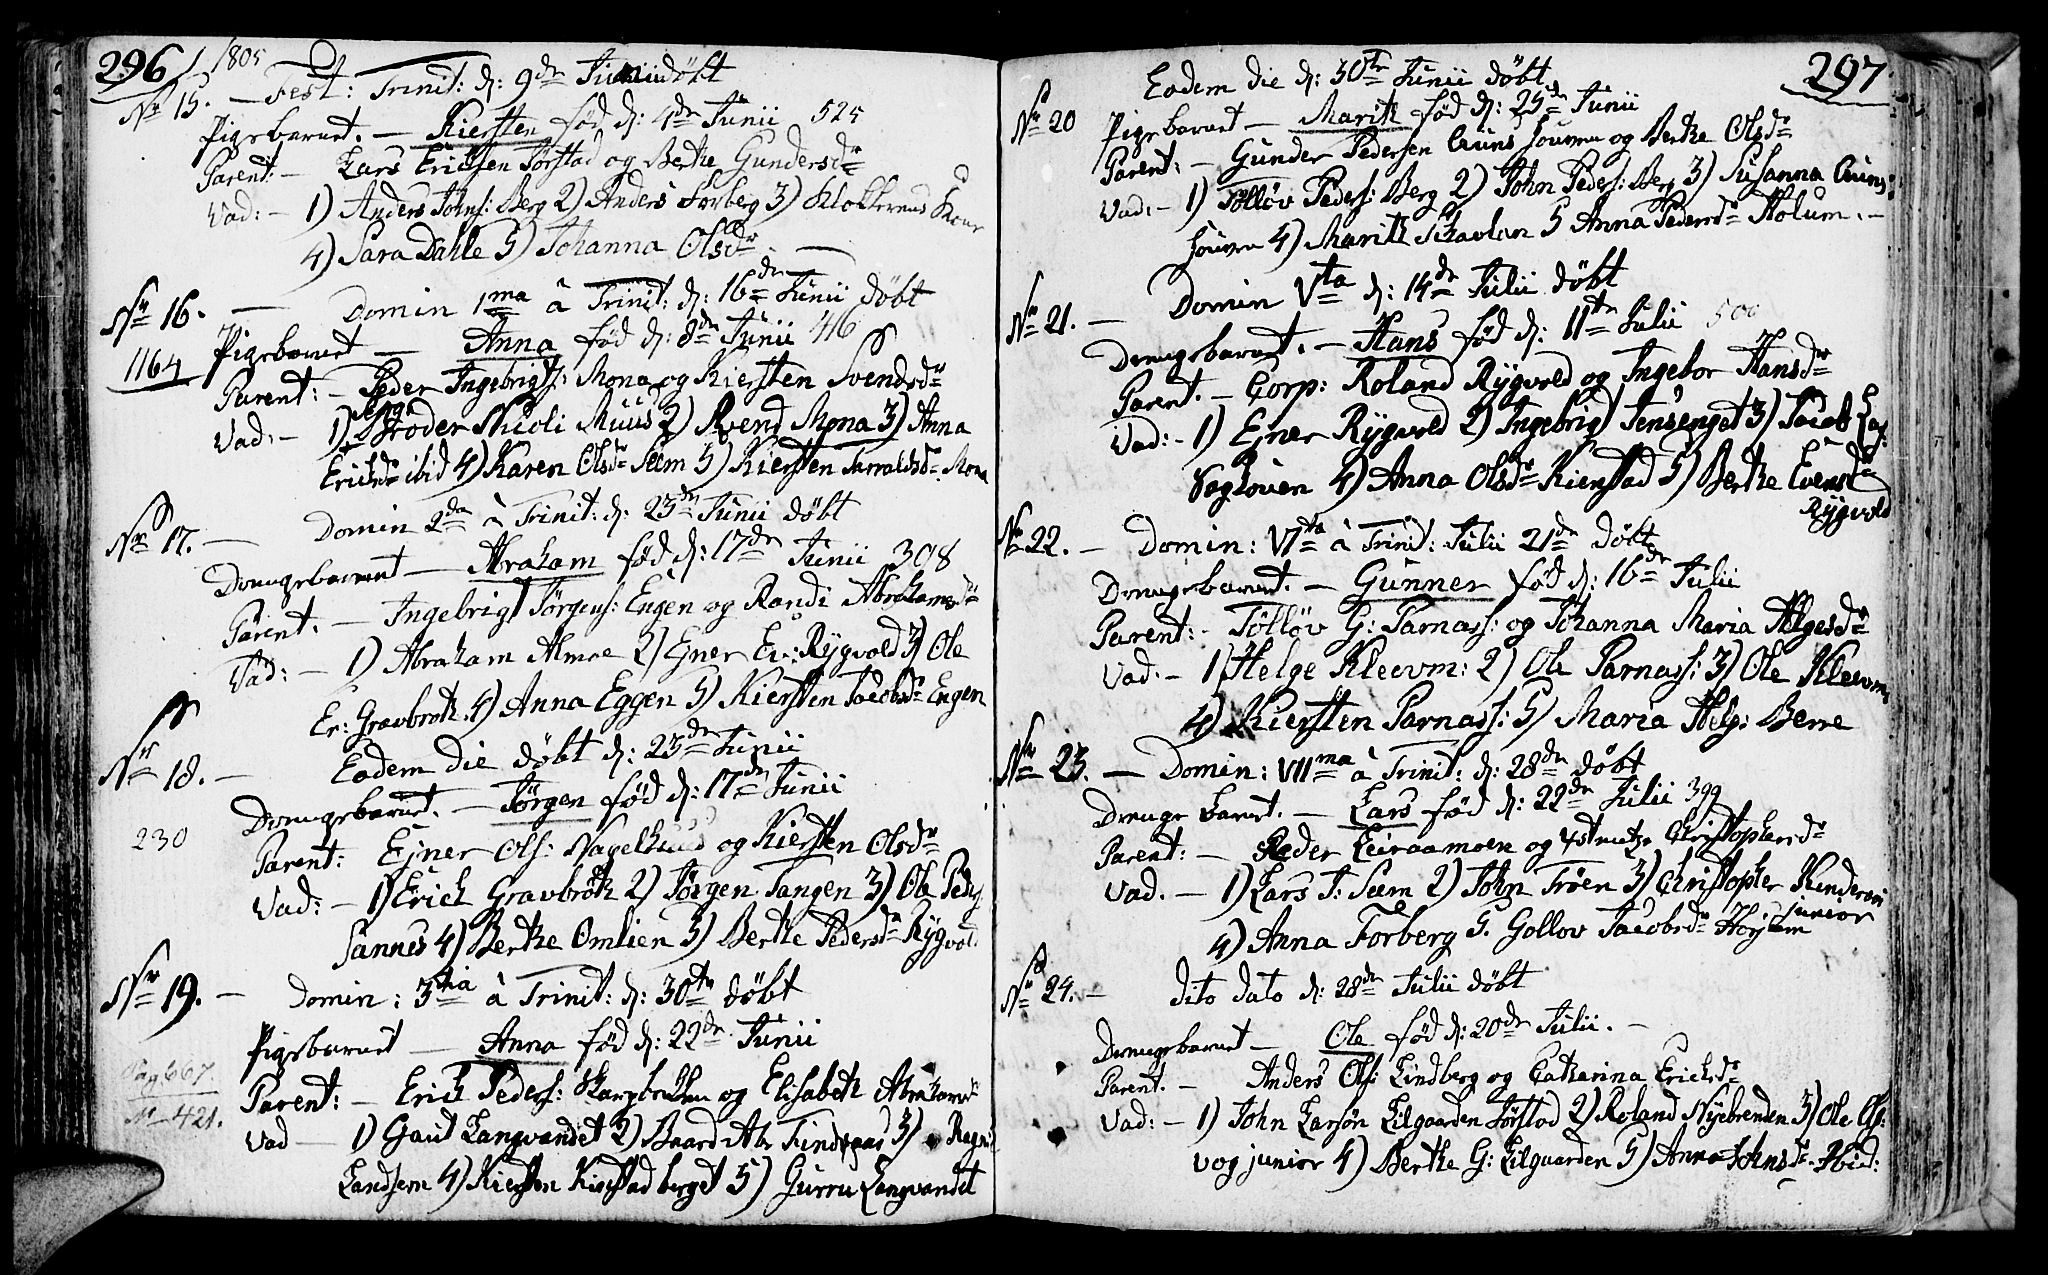 296 / 1805
No 15. — Fest: Trinit: d: 9de Junii döbt
Pigebarnet. — Kiersten föd d: 4de Junii 525
Parent: — Lars Ericksen Forstad og Berthe Gundersdr
Vad: — 1) Anders Johns: Berg 2) Anders Forberg 3) Klokkerens Kone
4) Sara Dahle 5) Johanna Olsdr. —
Nr 16. — Domin 1ma à Trinit: d: 16de Junii döbt
Pigebarnet — Anna föd d: 8de Junii 416
1164
Parent: — Peder Ingebrigts: Mona og Kiersten Svendsdr
Vad: — 1) Broder Nicoli Muus 2) Svend Mona 3) Anna
Ericksdr ibid 4) Karen Olsdr Seem 5) Kiersten Haraldsdr Mona
Nr 17. — Domin 2da à Trinit: d: 23de Junii döbt
Drengebarnet — Abraham föd d: 17de Junii 308
Parent. — Ingebrigt Jörgens: Engen og Randi Abrahamsdr
Vad: — 1) Abraham Almoe 2) Ejner Er: Rygvold 3) Ole
Er: Gravbroth 4) Anna Eggen 5) Kiersten Jacobsdr Engen
Nr 18. — Eodem die döbt d: 23de Junii
Drengebarnet. — Jörgen föd d: 17de Junii
230
Parent: Ejner Ols: Nagelhuus og Kiersten Olsdr
Vad: — 1) Erich Gravbroth 2) Jörgen Tangen 3) Ole Peders
Sannes 4) Berthe Omlien 5) Berthe Pedersdr Rygvold
Nr 19. — Domin: 3tia à Trinit: d: 30te döbt
Pigebarnet — Anna föd d: 22de Junii
Pag 667.
Parent: — Erich Peders: Skarpbrekken og Elisabeth Abrahamsdr
No 421.
Vad — 1) Gaut Langvandet 2) Baard Abr Findsaas 3) Ragni
Landsem 4) Kiersten Kirstad berget 5) Gurru Langvandet
297
Eodem die d: 30te Junii döbt
No 20 Pigebarnet — Marith föd d: 25de Junii
Parent: — Gunder Pedersen Auns houven og Berthe Olsdr
Vad: — 1) Tölløv Peders: Berg 2) John Peders: Berg 3) Susanna Auns
houven 4) Marith Skavlan 5 Anna Pedersdr Holum. —
Nr 21. — Domin Vta d: 14de Julii döbt
Drengebarnet. — Hans föd d: 11te Julii 500
Parent. — Corp: Roland Rygvold og Ingebor Hansdr
Vad: — 1) Ejner Rygvold 2) Ingebrigt Jensenget 3) Jacob Las:
Faghoven 4) Anna Olsdr Kierstad 5) Berthe Evensdr
Rygvold
Nr 22. — Domin: VIta à Trinit: Julii 21de döbt
Drengebarnet. — Gunner föd d: 16de Julii
Parent: — Tölløv G: Parnass: og Johanna Maria Helgesdr
Vad. — 1) Helge Kleevm: 2) Ole Parnass: 3) Ole Kleevm
4) Kiersten Parnass: 5) Maria Helg: Berre
Nr 23. — Domin: VIIma à Trinit: d: 28de döbt
Drenge barnet. — Lars föd d: 22de Julii 399
Parent: — Peder Leiraamoen og Christophersdr
Vad. — 1) Lars J: Seem 2) John Tröen 3) Christopher Hunderan
junior
4) Anna Forberg 5. Gollov Jacobsdr Höjlem
Nr 24. — dito dato d: 28de Julii döbt
Drengebarnet — Ole föd d: 20de Julii. —
Parent. — Anders Ols: Lindberg og Catharina Ericksdr
Vad: — 1) John Larsön Lilgaarden Förstad 2) Roland Nyebrenden 3) Ole Ols:
vog junior 4) Berthe G: Lilgaarden 5) Anna Johnsdr. Ibid: